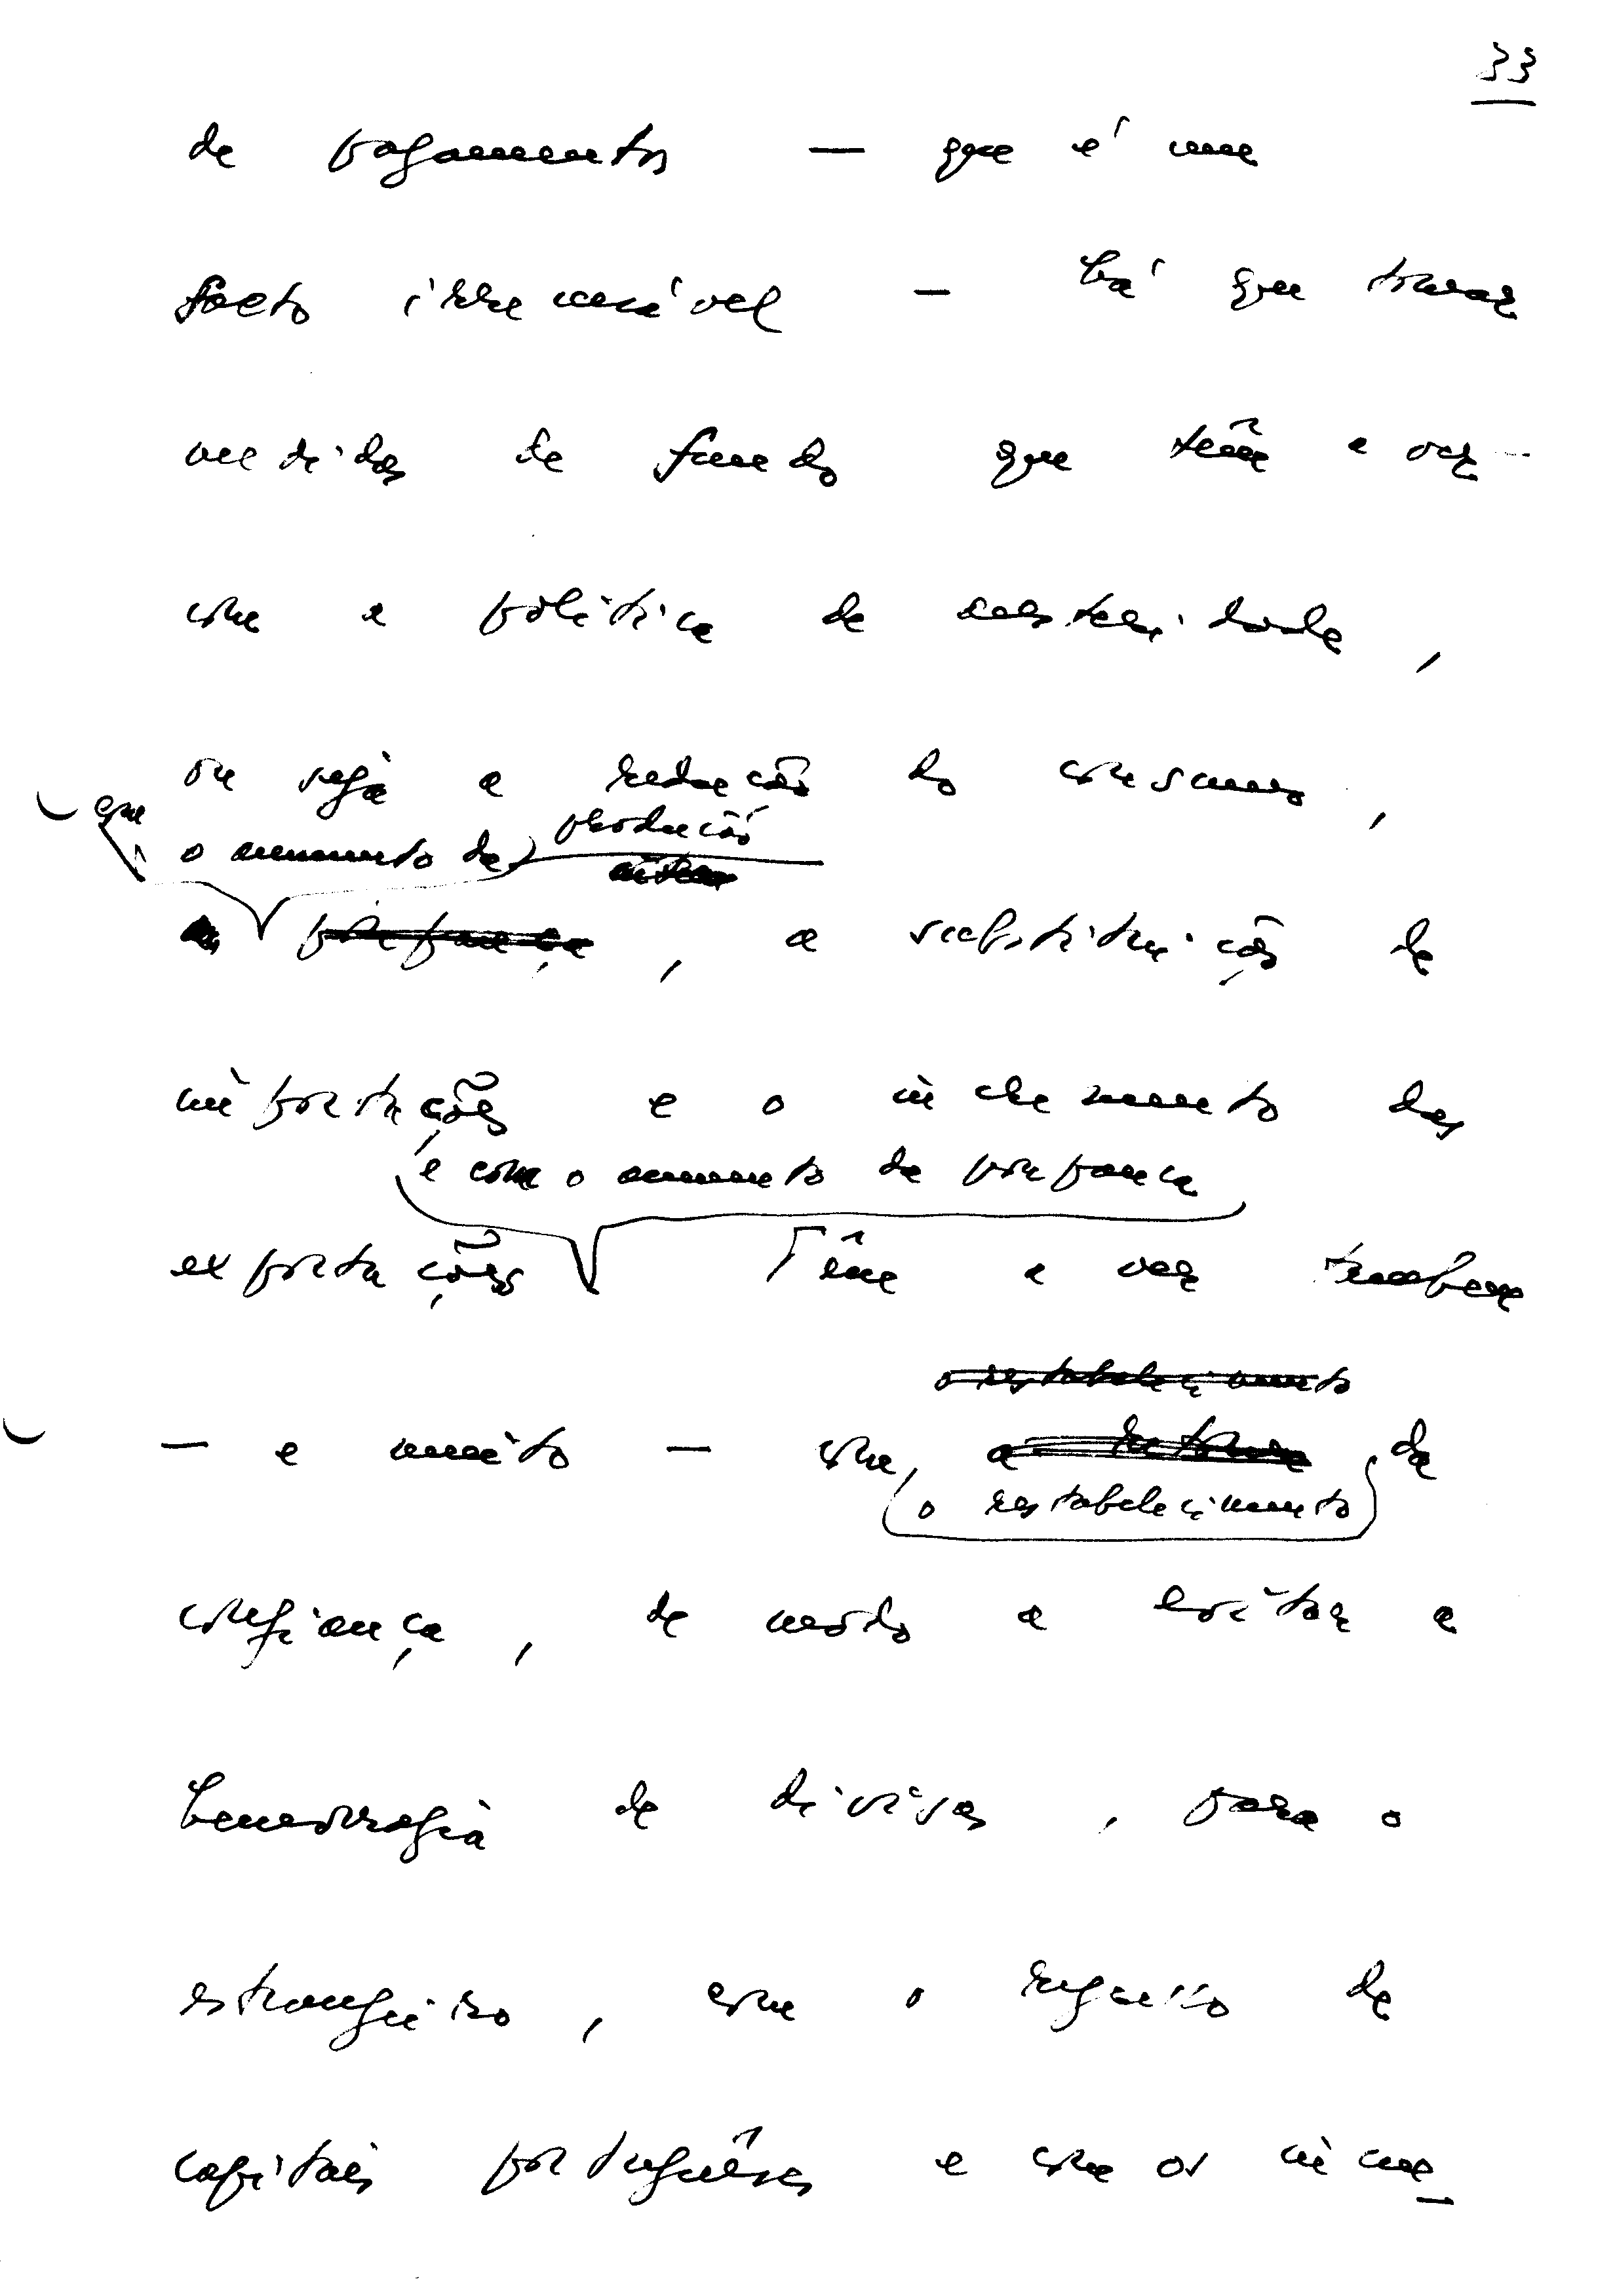 33
de pagamentos — que é um
facto irrecusável — há que tomar
medidas de fundo que têm a ver
com a política de austeridade,
ou seja a redução do consumo,
que
o aumento da produção
a poupança, a substituição de
importações e o incremento das
e com o aumento da poupança
exportações Têm a ver também
o restabelecimento
— e muito — com a retoma da
o restabelecimento
confiança, de modo a evitar a
hemorragia de divisas, para o
estrangeiro, com o regresso de
capitais portugueses e com os in